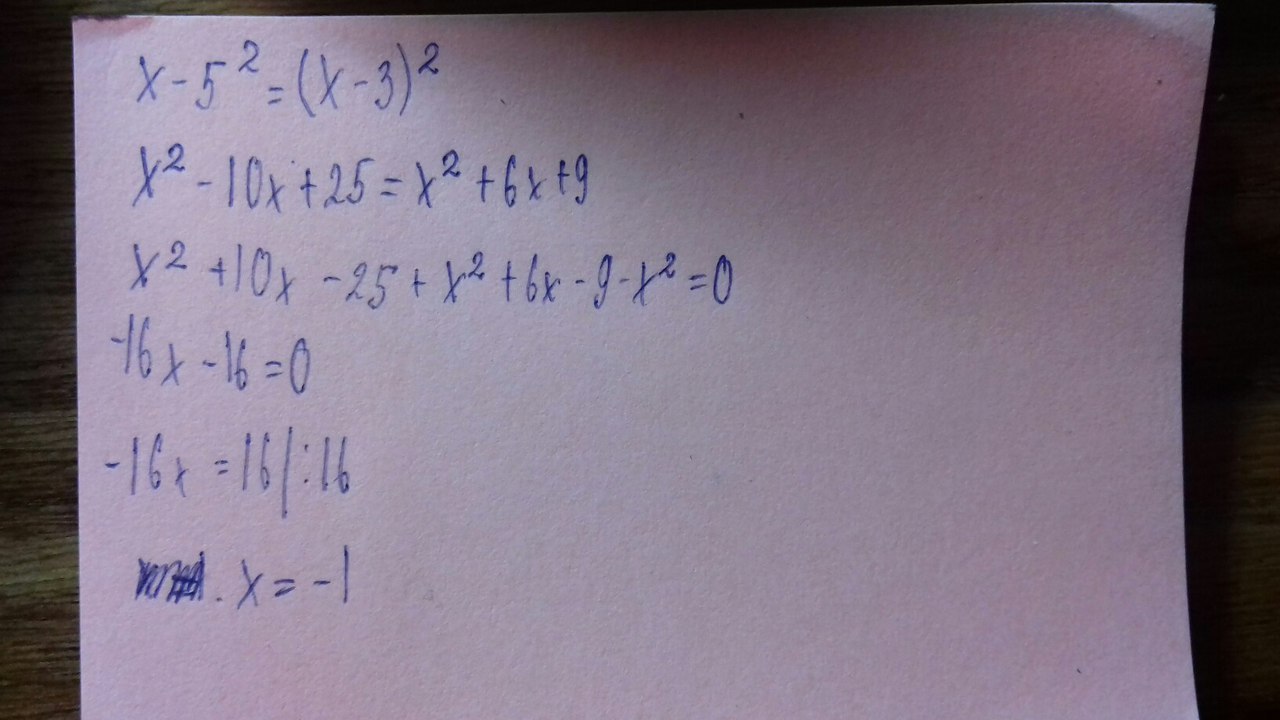 x - 5² = (x - 3)²
x² - 10x + 25 = x² + 6x + 9
x² + 10x - 25 + x² + 6x - 9 - x² = 0
-16x - 16 = 0
-16x = 16 | : 16
x = -1